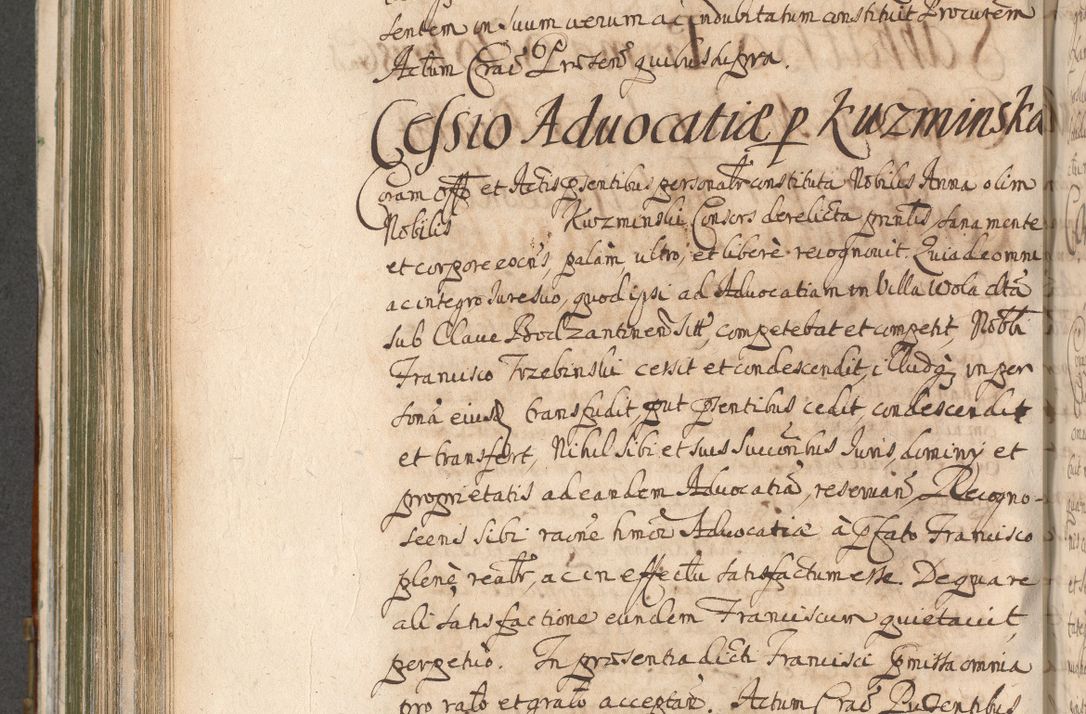 sentem in suum verum ac indubitatum constituit Procurem
Actum Crac Præsen quibus supra.
Cessio Aduocatiæ p Kuzminska
Coram offo et Actis psentibus personalr constituta Nobilis Anna olim
Nobilis Kuzminski Consors derelicta printis, sana mente
et corpore eocns, palam, ultro, et liberè recognouit. Quia de omni
ac integro Iure suo, quod ipsi ad Aduocatiam in Villa Wola dta
sub Claue Bodzantinen sitt, competebat et competit, Nobli
Francisco Trzebinski cessit et condescendit, illudq in per
sona eiusd transfudit, put psentibus cedit, condescendit
et transfert, Nihil sibi et suis succoribus Iuris, dominy et
proprietatis ad eandem Aduocatia, reseruan, Recogno-
scens sibi raone hmoi Aduocatiæ à pfato Francisco
plenè, realr, ac in effectu satisfactum esse. De qua re
ali satisfactione eundem Franciscum quietauit,
perpetuo. In præsentia dicti Francisci pmissa omnia
pro rato et grato acceptan. Actum Crac Pudentibus